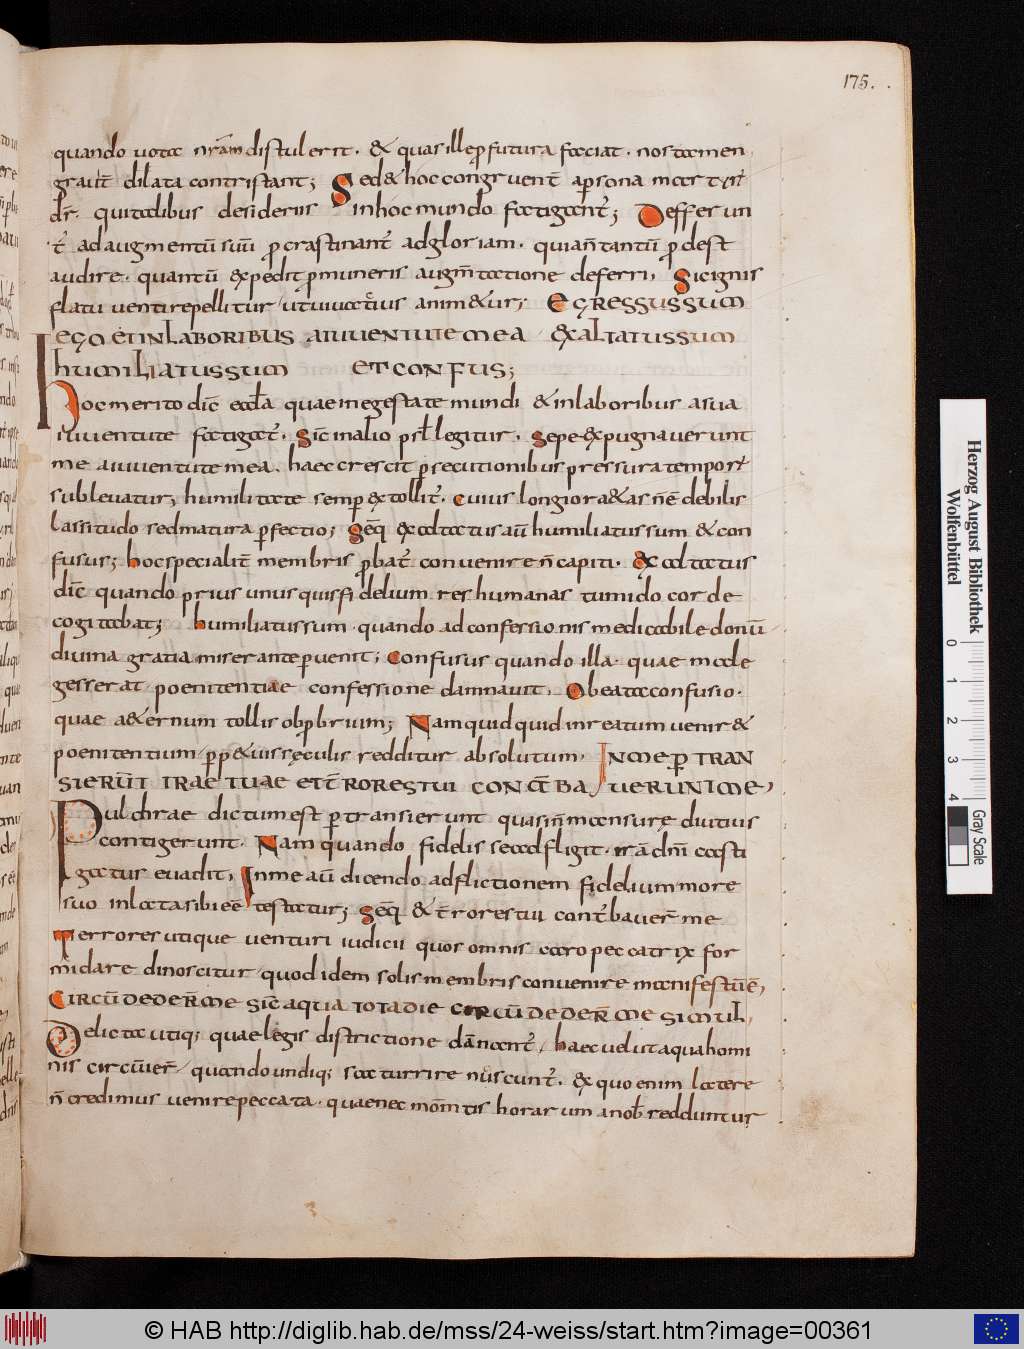 175.
quando uota nr̄am distulerit. & quasi ille pfutura faciat. nos tamen
grauit̄ dilata contristant; Sed & hoc congruent̄ apsona martyrū
dr̄. qui talibus desideriis in hoc mundo fatigant̄; Deffer un
t̄ ad augmentū suū pcrastinant̄ ad gloriam. quia n̄ tantū pdest
audire. quantū expedit pmuneris augm̄tatione deferri, Sic ignis
flatu uenti repellitur ut uiuatius anim&ur; EGRESSUS SUM
EGO ET IN LABORIBUS A IUUENTUTE MEA EXALTATUS SUM
HUMILIATUS SUM ET CONFUS;
Hoc merito dic̄ eccl̄a quae in egestate mundi & in laboribus a sua
iuuentute fatigat̄. Sic̄ in alio psl̄ legitur. Sepe expugnauerunt
me a iuuentute mea. haec crescit psecutionibus pressura tempor̄
subleuatur, humilitate semp extollit̄. Cuius longior a&as n̄ ē debilis
lassitudo sed matura pfectio; Seq̄ exaltatus aū humiliatus sum & con
fusus; hoc specialit̄ membris pbat̄ conuenire n̄ capiti. Exaltatus
dic̄ quando prius unus quis fidelium res humanas tumido corde
cogitabat; humiliatus sum quando ad confessionis medicabile donū
diuina gratia miserante puenit; Confusus quando illa quae male
gesserat poenitentiae confessione damnauit, O beata confusio.
quae a&ernum tollis obpbrium; Nam quidquid in reatum uenir&
poenitentium pp&uis sęculis redditur absolutum. IN ME P TRAN
SIERUNT IRAE TUAE ET T̄RORES TUI CONT̄BAUERUNT ME,
Pulchrae dictum est ptransierunt quasi n̄ mansurę diutius
contigerunt. Nam quando fidelis se adfligit. irā dn̄i casti
gatus euadit, In me aū dicendo adflictionem fidelium more
suo inlata sibi eē testatur; Seq̄ & t̄rores tui cont̄bauer̄ me
Terrores utique uenturi iudicii quos omnis caro peccatrix for
midare dinoscitur quod idem solis membris conuenire manifestū ē,
CIRCŪDEDER̄ ME SIC̄ AQUA TOTA DIE CIRCŪDEDER̄ ME SIMUL,
Delicta utiq; quae legis districtione dānant̄, haec uelut aqua homi
nis circūier̄ quando undiq; scaturrire nuscunt̄. ex quo enim latere
n̄ credimus uenire peccata. quae nec mom̄tis horarum a nob̄ redduntur
Herzog August Bibliothek
Wolfenbüttel
0 1 2 3 4
Gray Scale
© HAB http://diglib.hab.de/mss/24-weiss/start.htm?image=00361